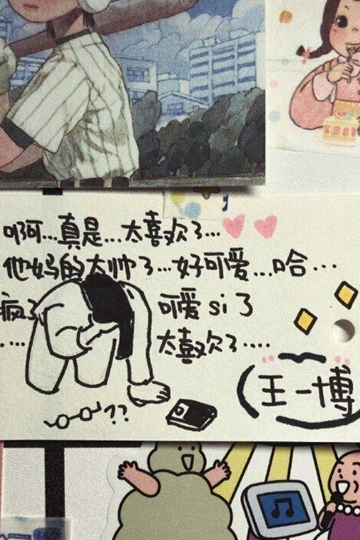 啊...真是...太喜欢了...
他妈的太帅了...好可爱...哈...
疯了 可爱 si 了
.... 太喜欢了....
(王一博)
??